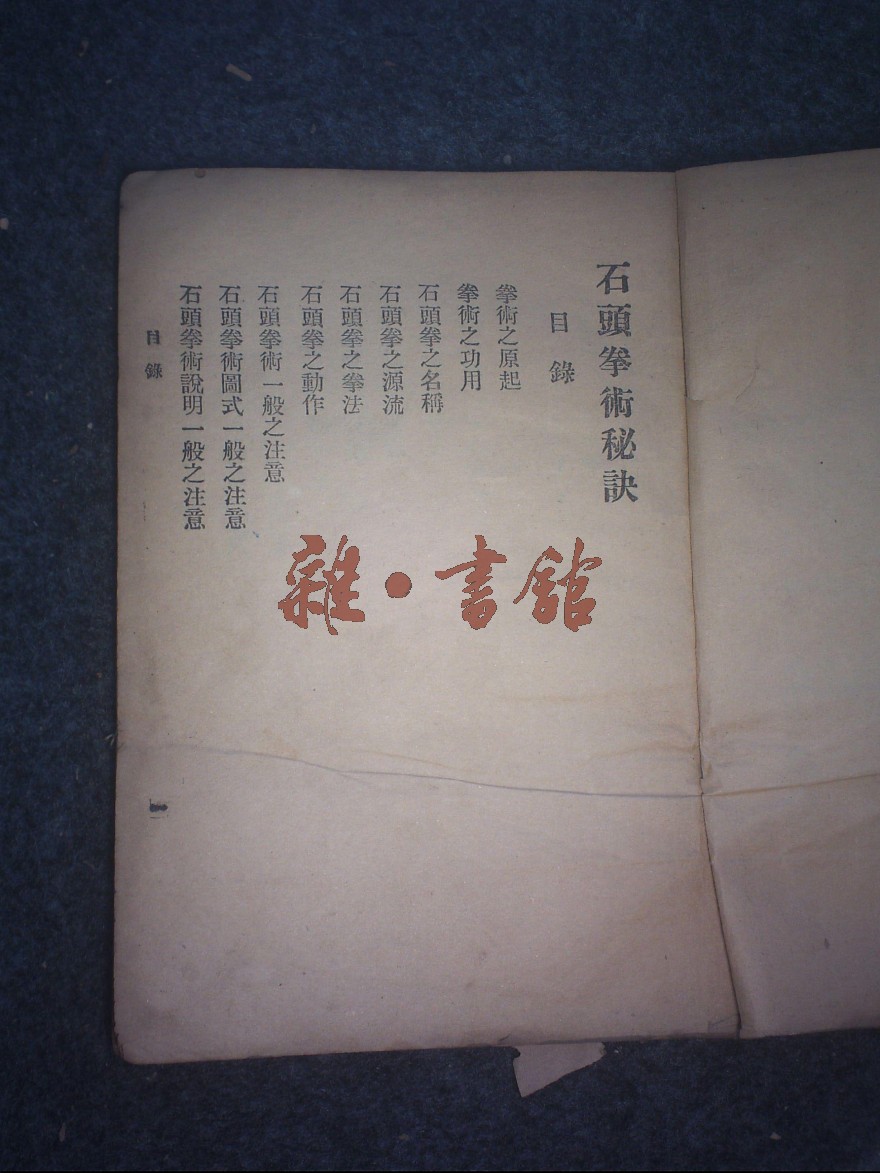 石頭拳術秘訣
目錄
拳術之原起
拳術之功用
石頭拳之名稱
石頭拳之源流
石頭拳之拳法
石頭拳之動作
石頭拳術一般之注意
石頭拳術圖式一般之注意
石頭拳術說明一般之注意
目錄
一
雜·書館